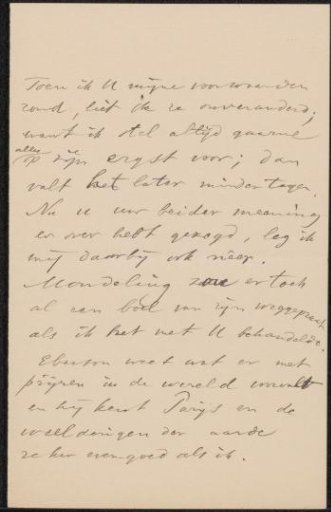 Toen ik U mijne voorwaarden
zond, liet ik ze onveranderd;
want ik stel altijd gaarne
alles
op zijn ergst voor; dan
valt het later minder tegen.
Nu U uw beider meening
er over hebt gezegd, leg ik
mij daarbij ook neer.
Mondeling zou er toch
al een boel van zijn weggepraat
als ik het met U behandelde.
Eberson weet wat er met
prijzen in de wereld omvalt
en hij kent Parijs en de
weelderigen der aarde
zeker even goed als ik.